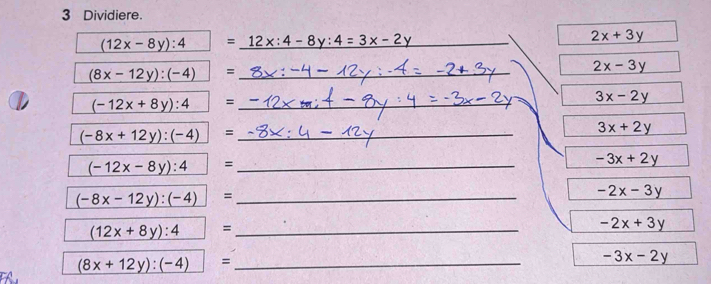 3 Dividiere.
(12x – 8y):4 = 12x:4 – 8y:4 = 3x – 2y 2x + 3y
(8x – 12y):(–4) = 8x:-4 - 12y:-4 = -2+3y 2x – 3y
(–12x + 8y):4 = -12x :4 - 8y:4 = -3x-2y 3x – 2y
(–8x + 12y):(–4) = -8x:4 - 12y 3x + 2y
(–12x – 8y):4 = –3x + 2y
(–8x – 12y):(–4) = –2x – 3y
(12x + 8y):4 = –2x + 3y
(8x + 12y):(–4) = –3x – 2y